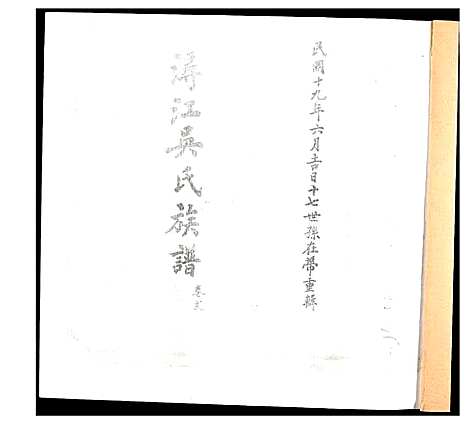 民國十九年六月吉日十七世孫在帶重輯
潯江吳氏族譜
卷弍